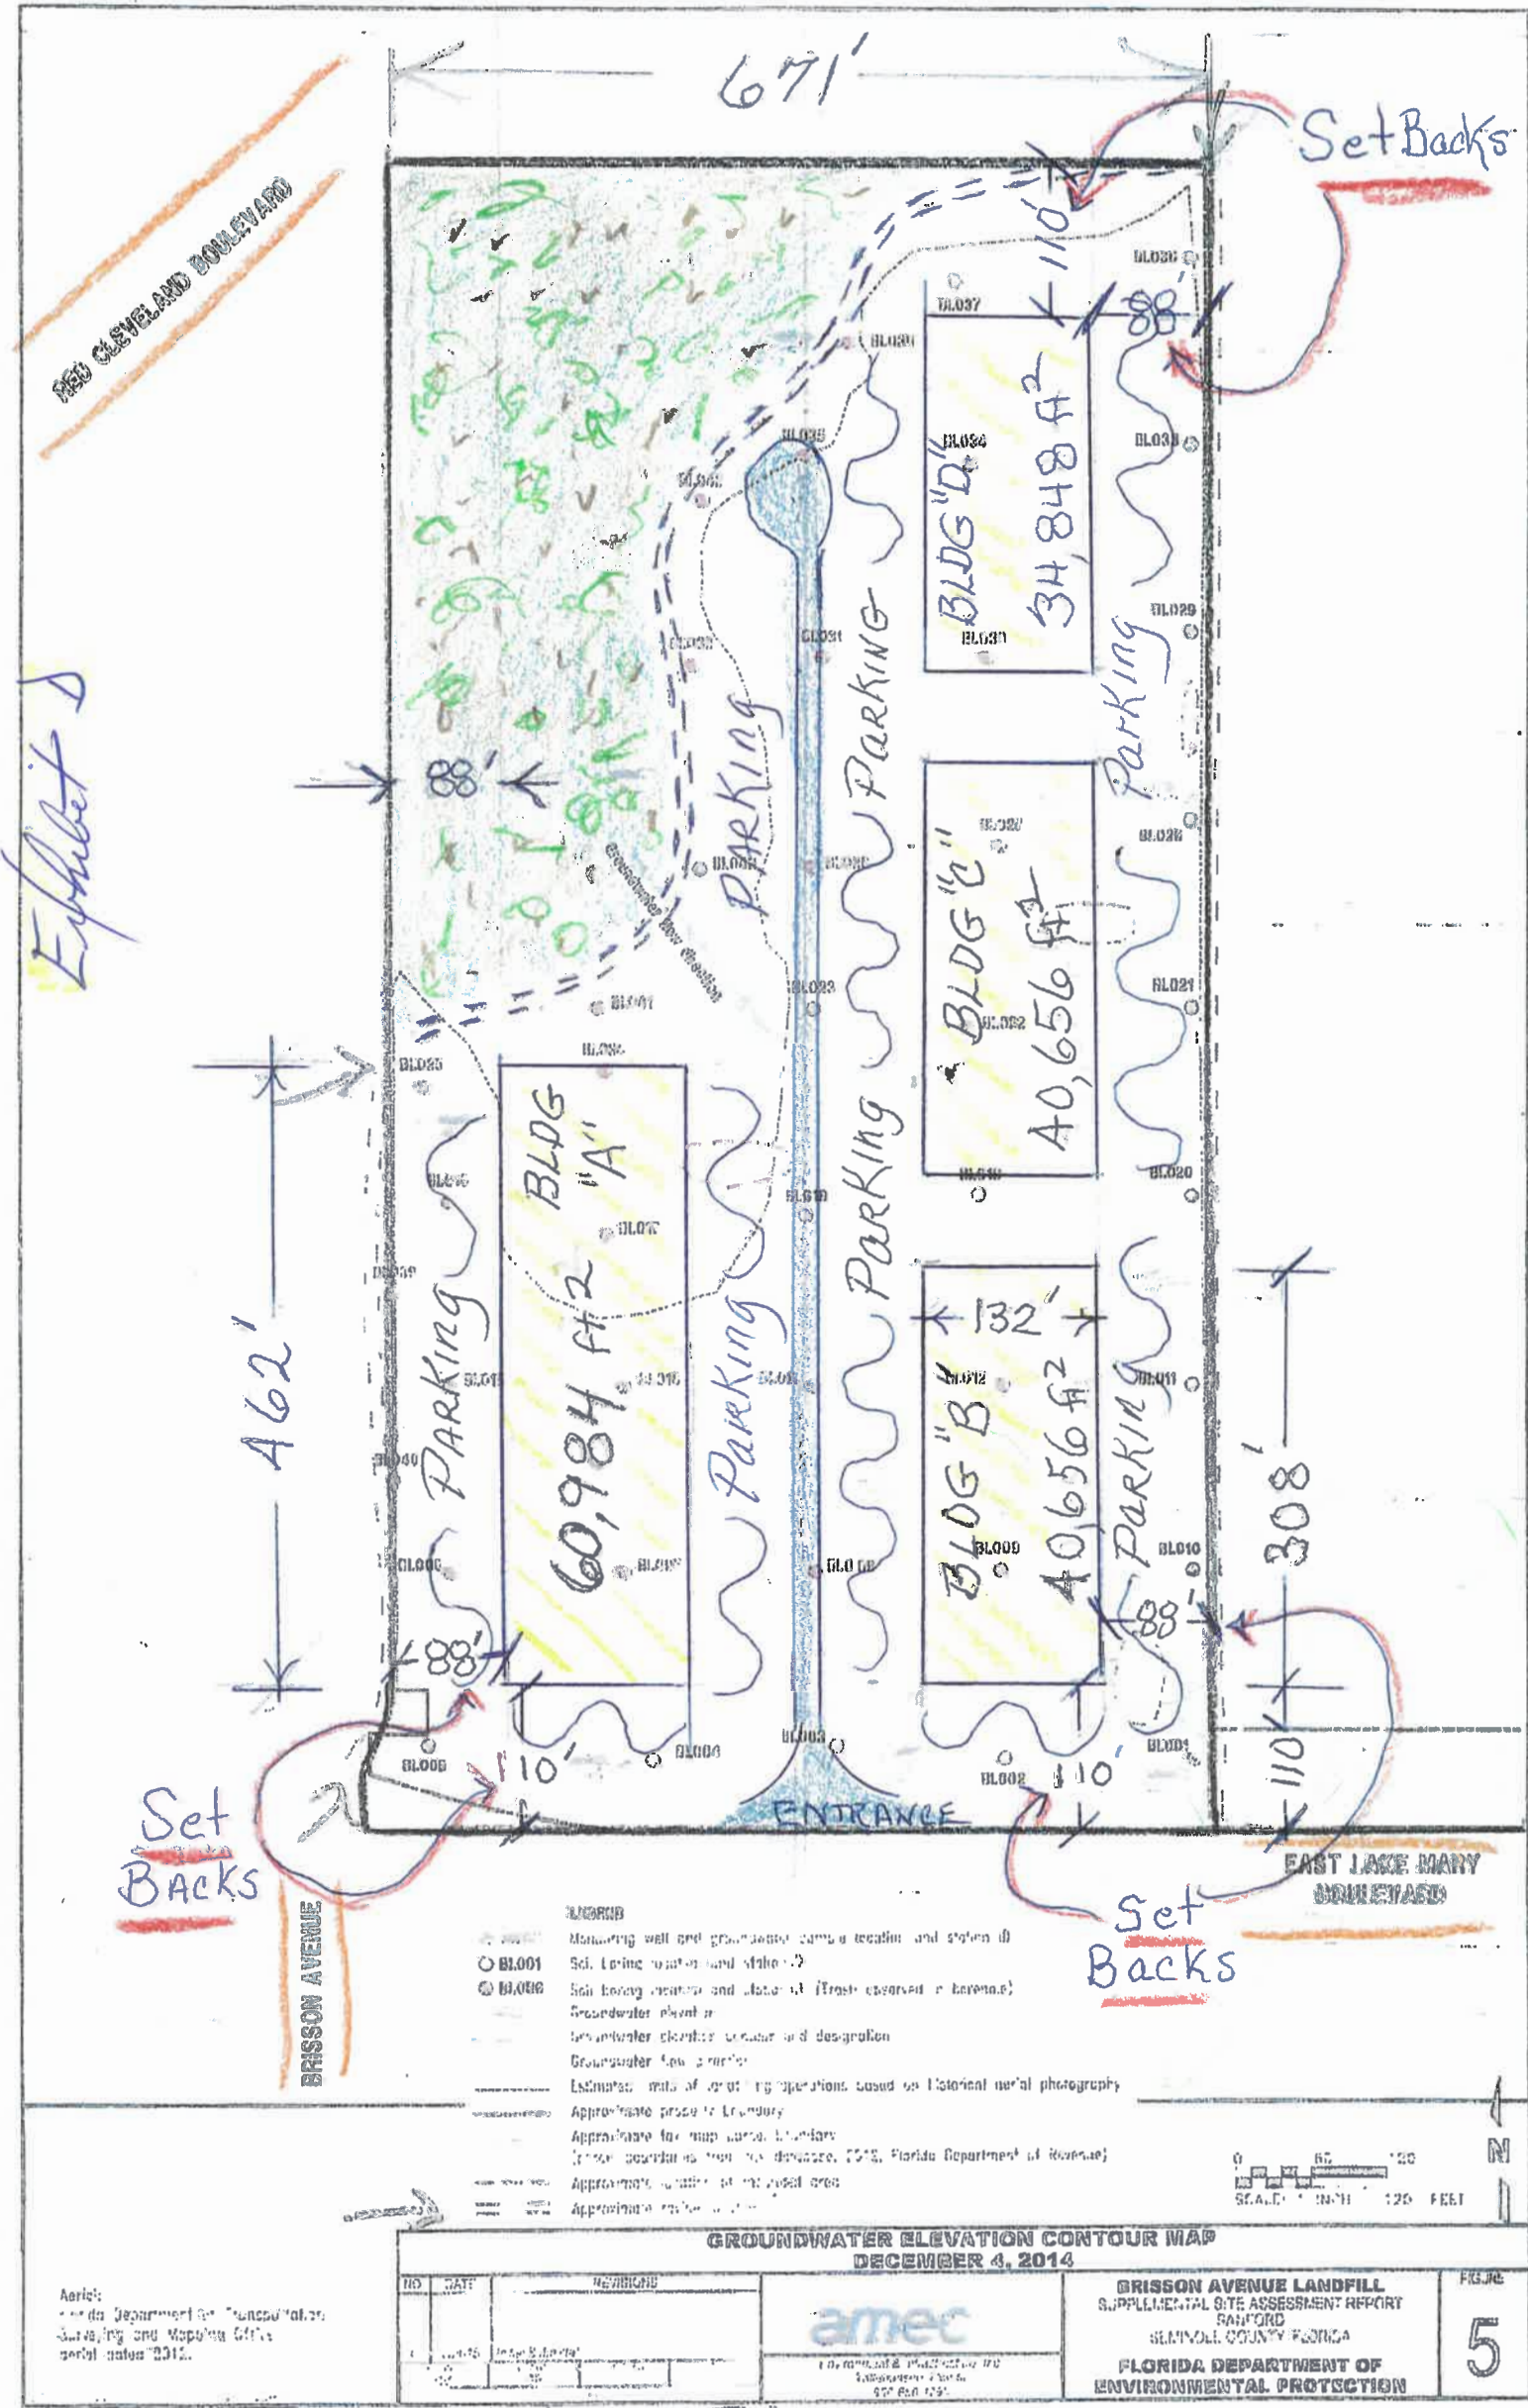 671'
Set Backs
RED CLEVELAND BOULEVARD
110'
88'
BL036
BL037
BLDG "D"
34,848 ft2
BL035
BL034
BL033
BL030
BL029
BL031
Parking
PARKING
Parking
Exhibit D
88'
Groundwater flow direction
BLDG "C"
40,656 ft2
BL028
BL022
BL021
BL023
BL020
BL018
BL019
BL041
BL025
BLDG "A"
60,984 ft2
462'
PARKING
Parking
Parking
BL017
BL016
BL039
BL040
132'
BLDG "B"
40,656 ft2
BL012
BL011
BL009
BL010
PARKING
308'
88'
88'
110'
110'
110'
BL005
BL004
BL003
BL002
BL001
ENTRANCE
Set
BACKS
Set
Backs
EAST LAKE MARY
BOULEVARD
BRISSON AVENUE
LEGEND
Monitoring well and groundwater sample location and station ID
BL001 Soil boring location and station ID
BL006 Soil boring location and station ID (Trash observed in borehole)
Groundwater elevation
Groundwater elevation contour and designation
Groundwater flow direction
Estimated limits of landfilling operations based on historical aerial photography
Approximate property boundary
Approximate tax map parcel boundary
(parcel boundaries from tax database, Florida Department of Revenue)
Approximate location of
Approximate
0 60 120
SCALE: 1 INCH 120 FEET
N
GROUNDWATER ELEVATION CONTOUR MAP
DECEMBER 4, 2014
NO DATE REVISIONS
amec
BRISSON AVENUE LANDFILL
SUPPLEMENTAL SITE ASSESSMENT REPORT
SANFORD
SEMINOLE COUNTY FLORIDA
FLORIDA DEPARTMENT OF
ENVIRONMENTAL PROTECTION
FIGURE
5
Aerial:
Florida Department of Transportation
Surveying and Mapping Office
aerial dated 2012.